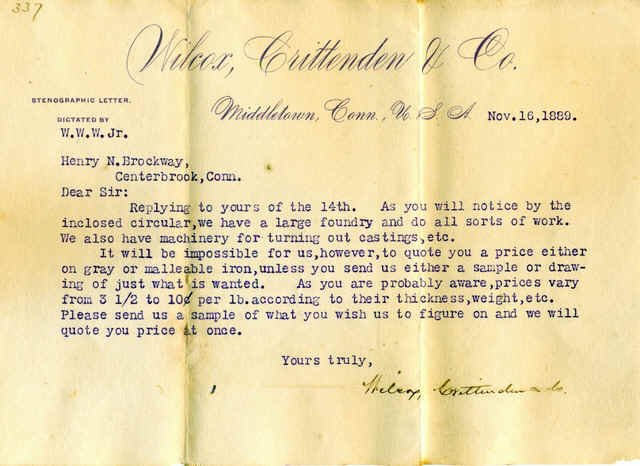 337
Wilcox, Crittenden & Co.
STENOGRAPHIC LETTER.
Middletown, Conn., U. S. A. Nov.16,1889.
DICTATED BY
W.W.W.Jr.
Henry N.Brockway,
Centerbrook,Conn.
Dear Sir:
Replying to yours of the 14th. As you will notice by the
inclosed circular,we have a large foundry and do all sorts of work.
We also have machinery for turning out castings,etc.
It will be impossible for us,however,to quote you a price either
on gray or malleable iron,unless you send us either a sample or draw-
ing of just what is wanted. As you are probably aware,prices vary
from 3 1/2 to 10¢ per lb.according to their thickness,weight,etc.
Please send us a sample of what you wish us to figure on and we will
quote you price at once.
Yours truly,
Wilcox, Crittenden & Co.